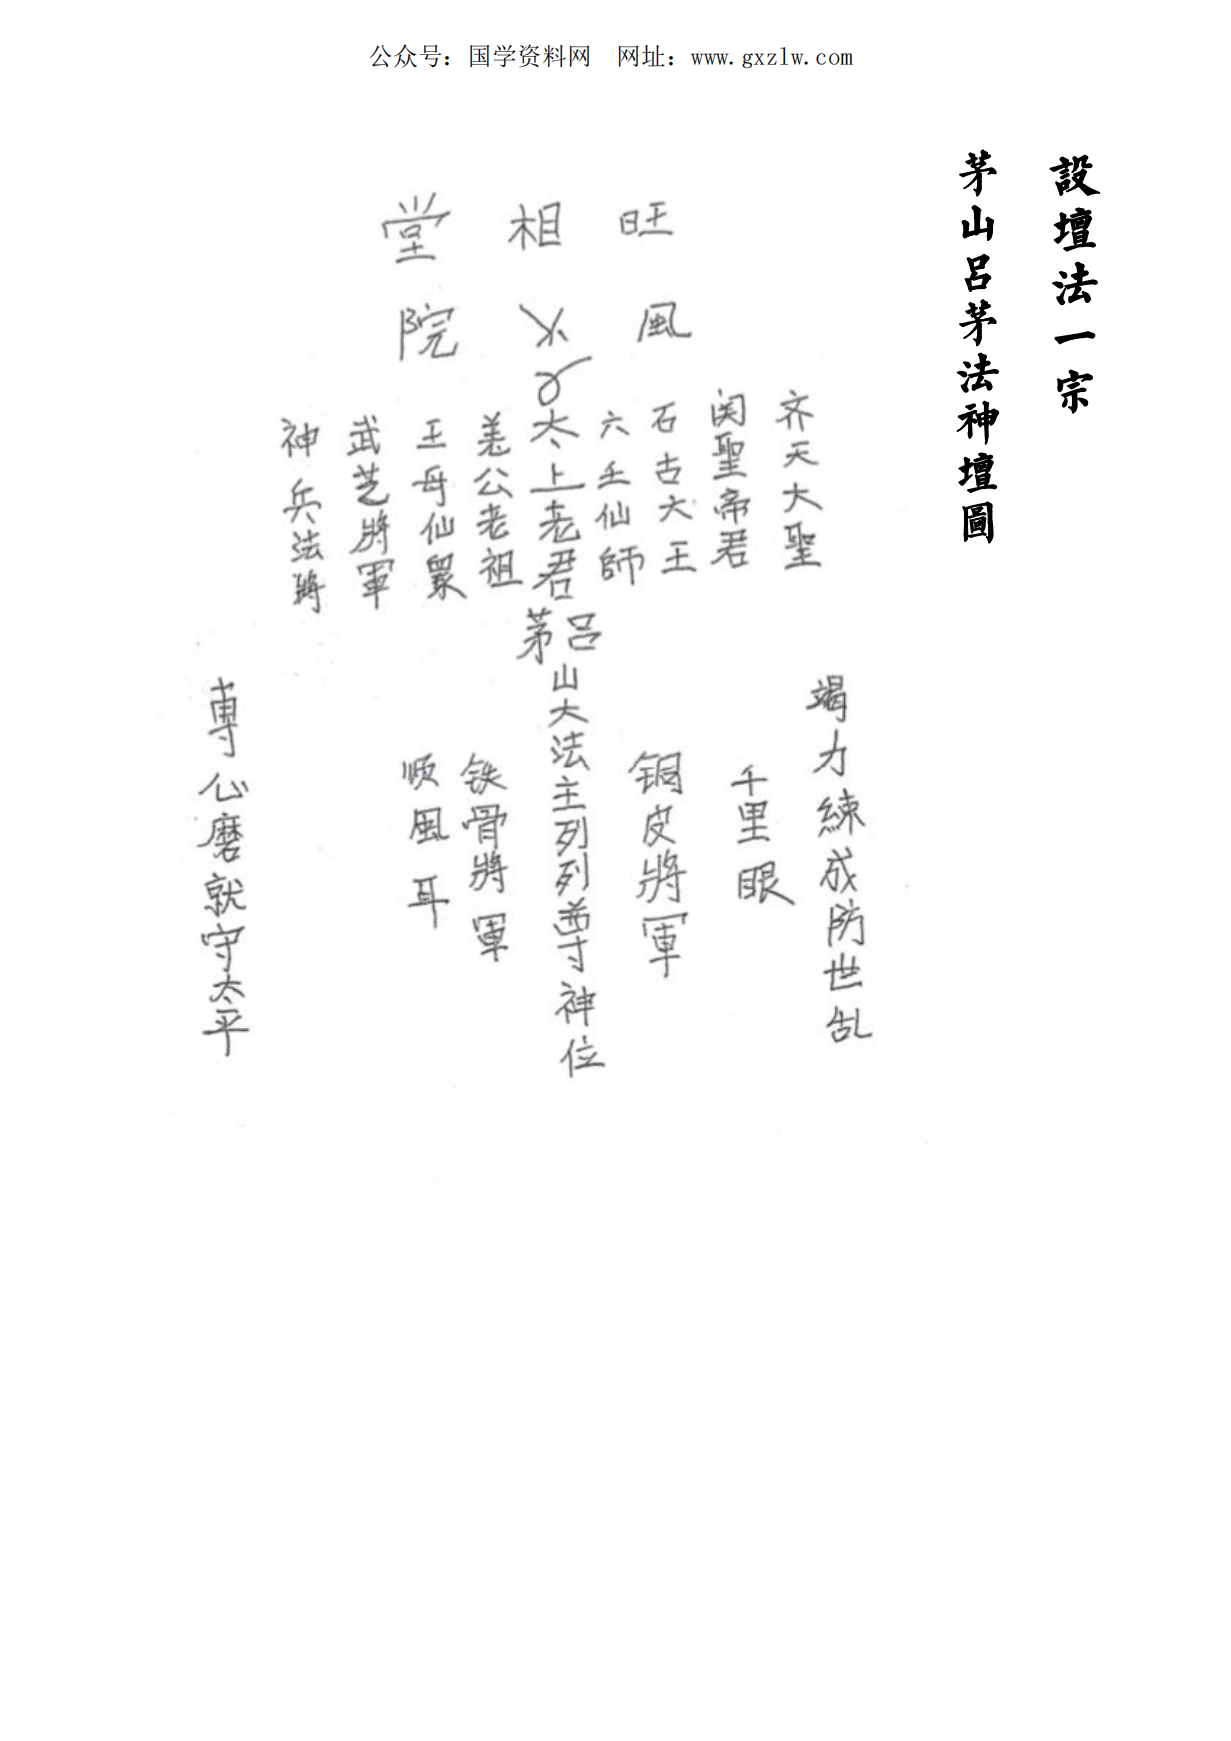 公众号：国学资料网　网址：www.gxzlw.com
設壇法一宗
茅山呂茅法神壇圖
旺相堂
風火院
齐天大聖
関聖帝君
石古大王
六壬仙師
太上老君
姜公老祖
王母仙眾
武芝將軍
神兵法將
呂茅山大法主列列尊神位
竭力練成防世乱
千里眼
铜皮將軍
铁骨將軍
顺風耳
専心磨就守太平